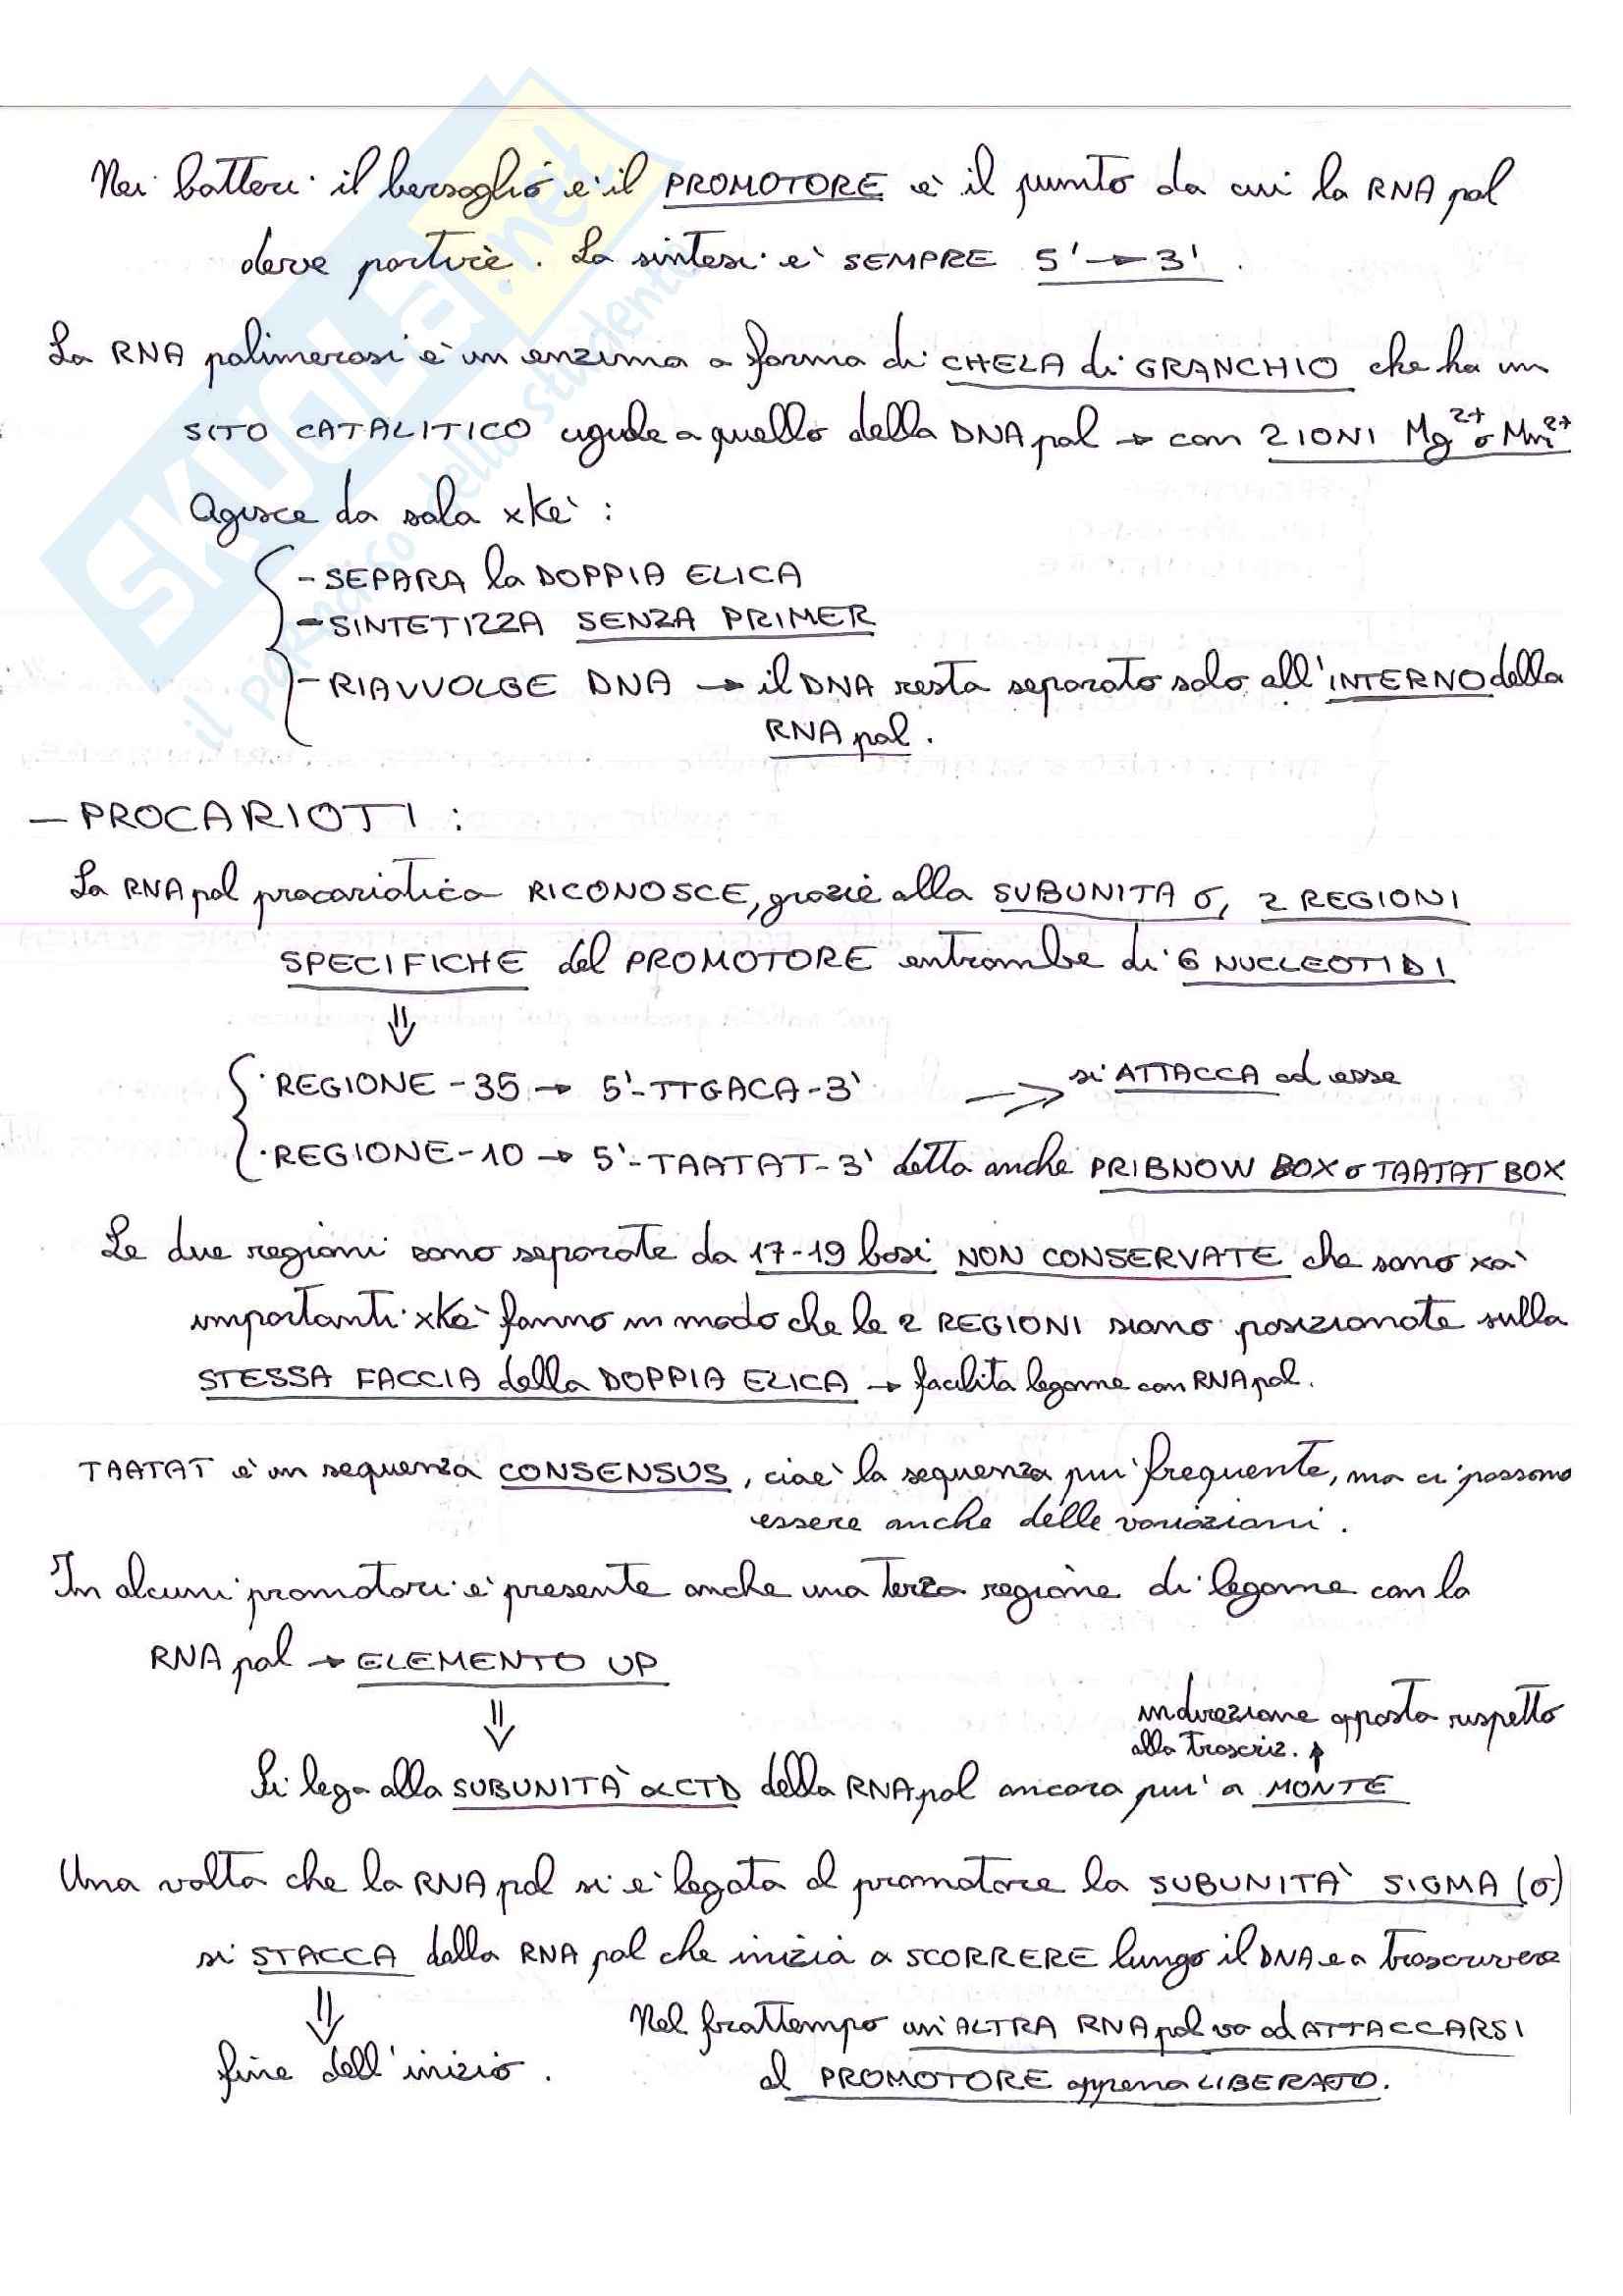 Nei batteri il bersaglio è il PROMOTORE è il punto da cui la RNA pol
deve partire. La sintesi è SEMPRE 5' → 3'.
La RNA polimerasi è un enzima a forma di CHELA di GRANCHIO che ha un
SITO CATALITICO uguale a quello della DNA pol → con 2 IONI Mg²⁺ o Mn²⁺
Agisce da sola xkè :
- SEPARA la DOPPIA ELICA
- SINTETIZZA SENZA PRIMER
- RIAVVOLGE DNA → il DNA resta separato solo all'INTERNO della
RNA pol.
— PROCARIOTI :
La RNA pol procariotica RICONOSCE, grazie alla SUBUNITA σ, 2 REGIONI
SPECIFICHE del PROMOTORE entrambe di 6 NUCLEOTIDI
⇓
· REGIONE -35 → 5'-TTGACA-3' ⇒ si ATTACCA ad esse
· REGIONE -10 → 5'-TAATAT-3' detta anche PRIBNOW BOX o TAATAT BOX
Le due regioni sono separate da 17-19 basi NON CONSERVATE che sono xò
importanti xkè fanno in modo che le 2 REGIONI siano posizionate sulla
STESSA FACCIA della DOPPIA ELICA → facilita legame con RNA pol.
TAATAT è un sequenza CONSENSUS, cioè la sequenza più frequente, ma ci possono
essere anche delle variazioni.
In alcuni promotori è presente anche una terza regione di legame con la
RNA pol → ELEMENTO UP
⇓
in direzione opposta rispetto
alla trascriz. ↑
Si lega alla SUBUNITÀ αCTD della RNA pol ancora più a MONTE
Una volta che la RNA pol si è legata al promotore la SUBUNITÀ SIGMA (σ)
si STACCA dalla RNA pol che inizia a SCORRERE lungo il DNA e a trascrivere
⇓
Nel frattempo un'ALTRA RNA pol va ad ATTACCARSI
fine dell'inizio.
al PROMOTORE appena LIBERATO.
SKUOLA.net
il paradiso dello studente